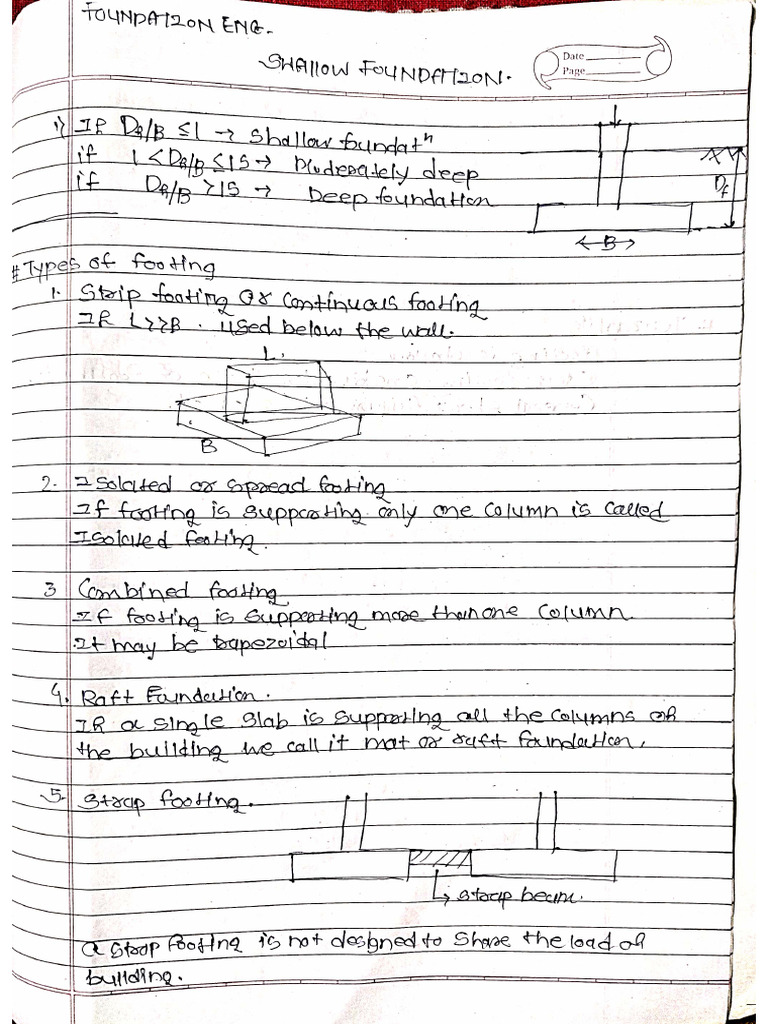 FOUNDATION ENG.
SHALLOW FOUNDATION.
Date
Page
1) If Df/B ≤ 1 → Shallow foundatⁿ
if 1 < Df/B ≤ 15 → Moderately deep
if Df/B > 15 → Deep foundation
Df
B
# Types of footing
1. Strip footing or continuous footing
If L>>B. Used below the wall.
L.
B
2. Isolated or spread footing
If footing is supporting only one column is called
Isolated footing.
3 Combined footing
If footing is supporting more than one column.
It may be trapezoidal
4. Raft Foundation.
If a single slab is supporting all the columns of
the building we call it mat or raft foundation.
5. Strap footing.
strap beam.
a strap footing is not designed to share the load of
building.